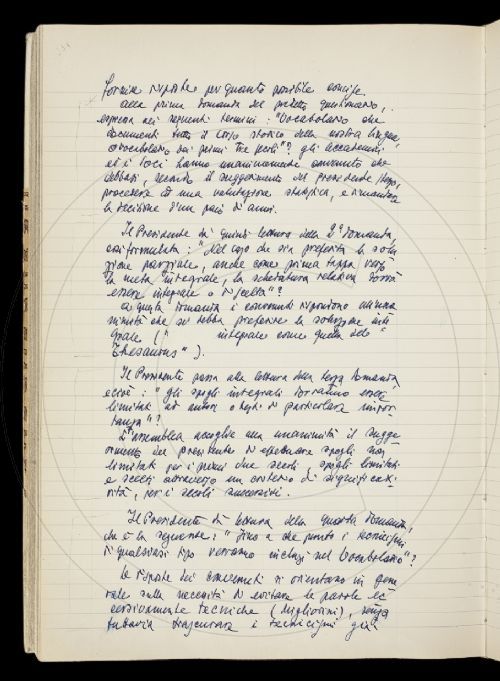 fornire risposte per quanto possibile concise.
Alla prima domanda del predetto questionario,
espressa nei seguenti termini: "Vocabolario che
documenti tutto il corso storico della nostra lingua,
o vocabolario dei primi tre secoli"? gli Accademici
ed i Soci hanno unanimemente convenuto che
debbasi, secondo il suggerimento del presidente stesso,
procedere ad una valutazione statistica, e rimandare
la decisione d'un paio di anni.
Il Presidente dà quindi lettura della 2ª domanda,
così formulata: "Nel caso che sia preferita la solu
zione parziale, anche come prima tappa verso
la meta integrale, la schedatura relativa dovrà
essere integrale o di scelta"?
A questa domanda i convenuti rispondono all'una
nimità che si debba preferire la soluzione inte
grale (" integrale come quella del "
Thesaurus").
Il Presidente passa alla lettura della terza domanda
e cioè: "gli spogli integrali dovranno essere
limitati ad autori o testi di particolare impor
tanza"?
L'assemblea accoglie alla unanimità il sugge
rimento del presidente di effettuare spogli non
limitati per i primi due secoli, spogli limitati
e scelti attraverso un criterio di significati
vità, per i secoli successivi.
Il Presidente dà lettura della quarta domanda,
che è la seguente: "fino a che punto i tecnicismi
di qualsiasi tipo verranno inclusi nel Vocabolario"?
Le risposte dei convenuti si orientano in gene
rale sulla necessità di evitare le parole ec
cessivamente tecniche (Migliorini), senza
tuttavia trascurare i tecnicismi già